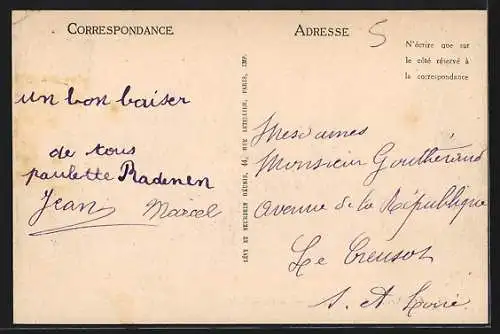 CORRESPONDANCE
un bon baiser
de tous
paulette Radenen
Jean Marcel
LÉVY ET NEURDEIN RÉUNIS, 44, RUE LETELLIER, PARIS, IMP.
ADRESSE
5
N'écrire que sur
le côté réservé à
la correspondance
Mesdames
Monsieur Gouthéraud
Avenue de la République
Le Creusot
S. et Loire